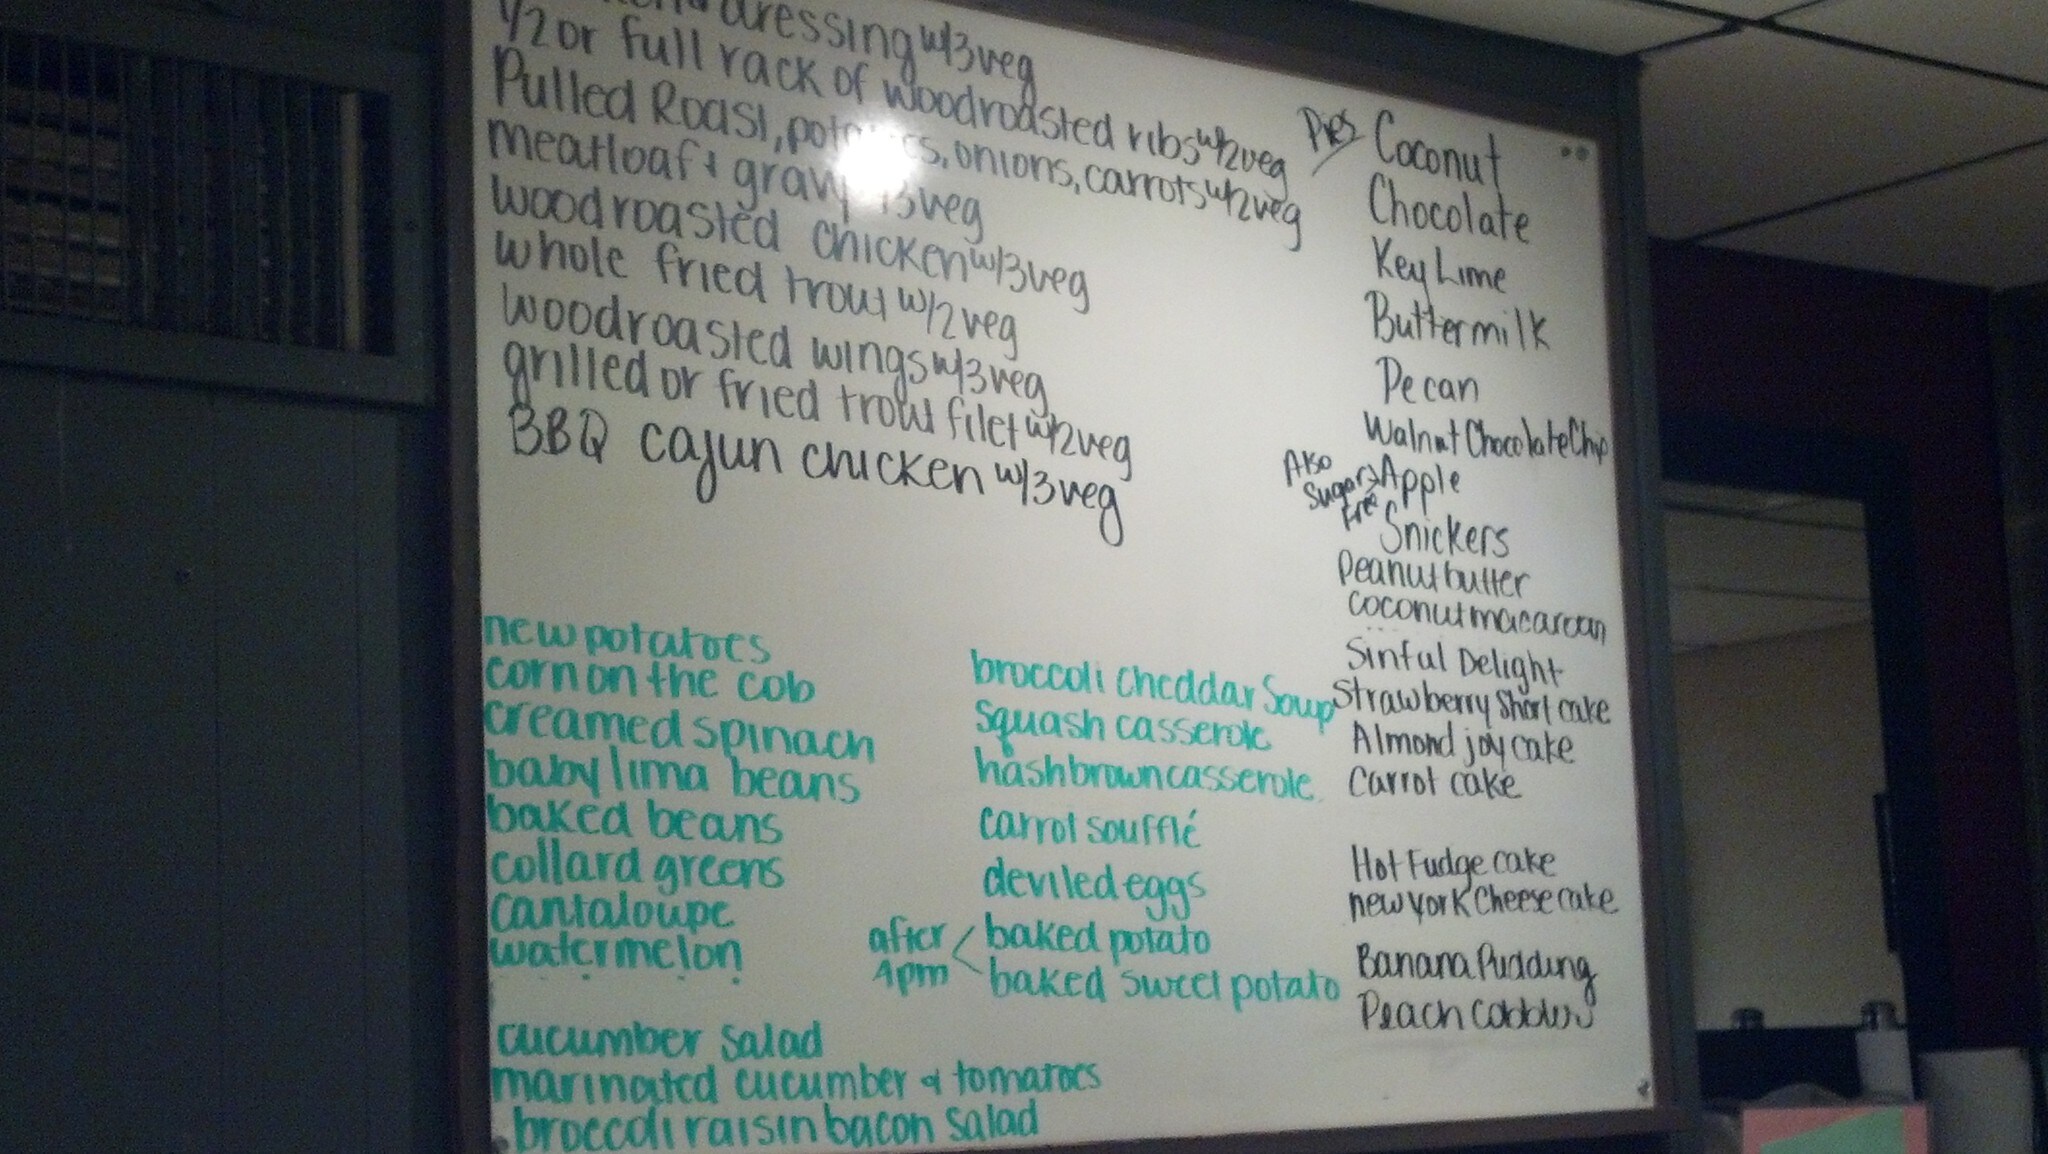 dressing w/3 veg
1/2 or full rack of woodroasted ribs w/2 veg
Pulled Roast, potatoes, onions, carrots w/2 veg
meatloaf + gravy w/3 veg
woodroasted chicken w/3 veg
whole fried trout w/2 veg
woodroasted wings w/3 veg
grilled or fried trout filet w/2 veg
BBQ cajun chicken w/3 veg
new potatoes
corn on the cob
creamed spinach
baby lima beans
baked beans
collard greens
cantaloupe
watermelon
cucumber salad
marinated cucumber & tomatoes
broccoli raisin bacon salad
broccoli cheddar Soup
Squash casserole
hashbrown casserole
carrot soufflé
deviled eggs
after 4pm
baked potato
baked sweet potato
Pies
Coconut
Chocolate
Key Lime
Buttermilk
Pecan
Walnut Chocolate Chip
Also Sugar Free > Apple
Snickers
Peanutbutter
coconut macaroon
Sinful Delight
Strawberry Short cake
Almond joy cake
Carrot cake
Hot Fudge cake
new york Cheese cake
Banana Pudding
Peach Cobbler